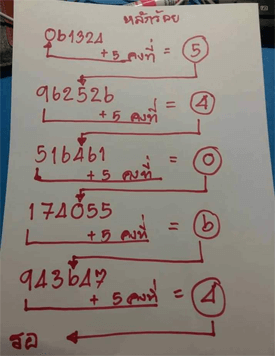 หลักร้อย
061324
+ 5 คงที่ = 5
962526
+ 5 คงที่ = 4
516461
+ 5 คงที่ = 0
174055
+ 5 คงที่ = 6
943647
+ 5 คงที่ = 4
รอ